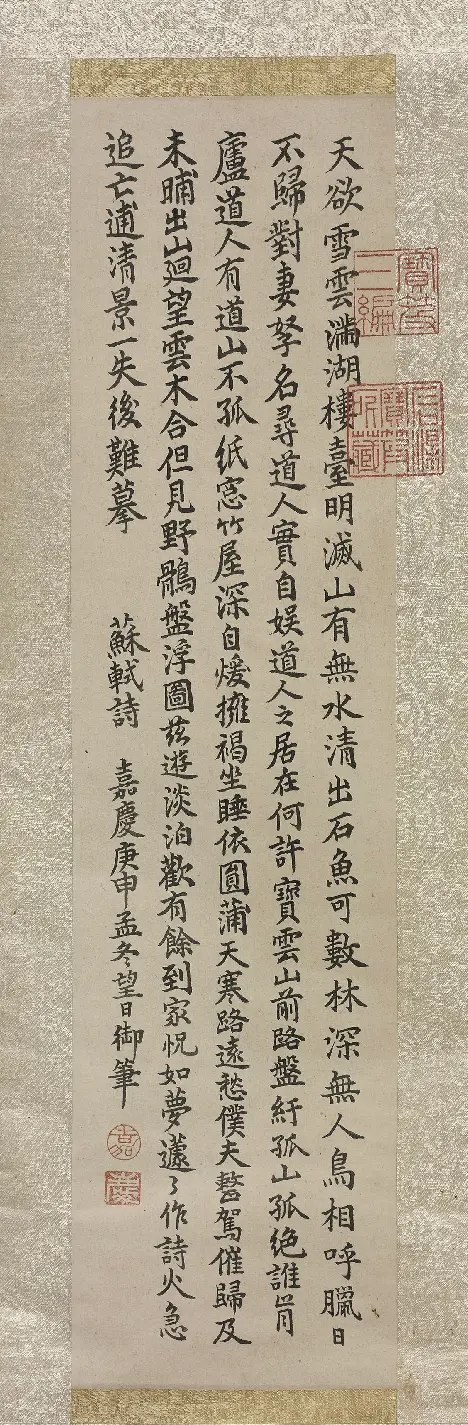 天欲雪雲滿湖樓臺明滅山有無水清出石魚可數林深無人鳥相呼臘日
不歸對妻孥名尋道人實自娛道人之居在何許寶雲山前路盤紆孤山孤絕誰肯
廬道人有道山不孤紙窓竹屋深自煖擁褐坐睡依圓蒲天寒路遠愁僕夫整駕催歸及
未晡出山迴望雲木合但見野鶻盤浮圖茲遊淡泊歡有餘到家怳如夢蘧〻作詩火急
追亡逋清景一失後難摹 蘇軾詩 嘉慶庚申孟冬望日御筆
嘉
慶
寶笈三編
石渠寶笈所藏